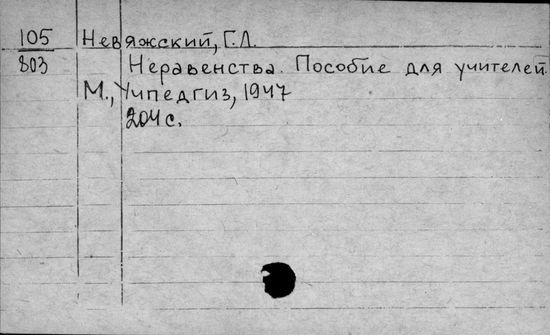 105 Невяжский, Г.Л.
803 Неравенства. Пособие для учителей.
М., Учпедгиз, 1947
204 с.